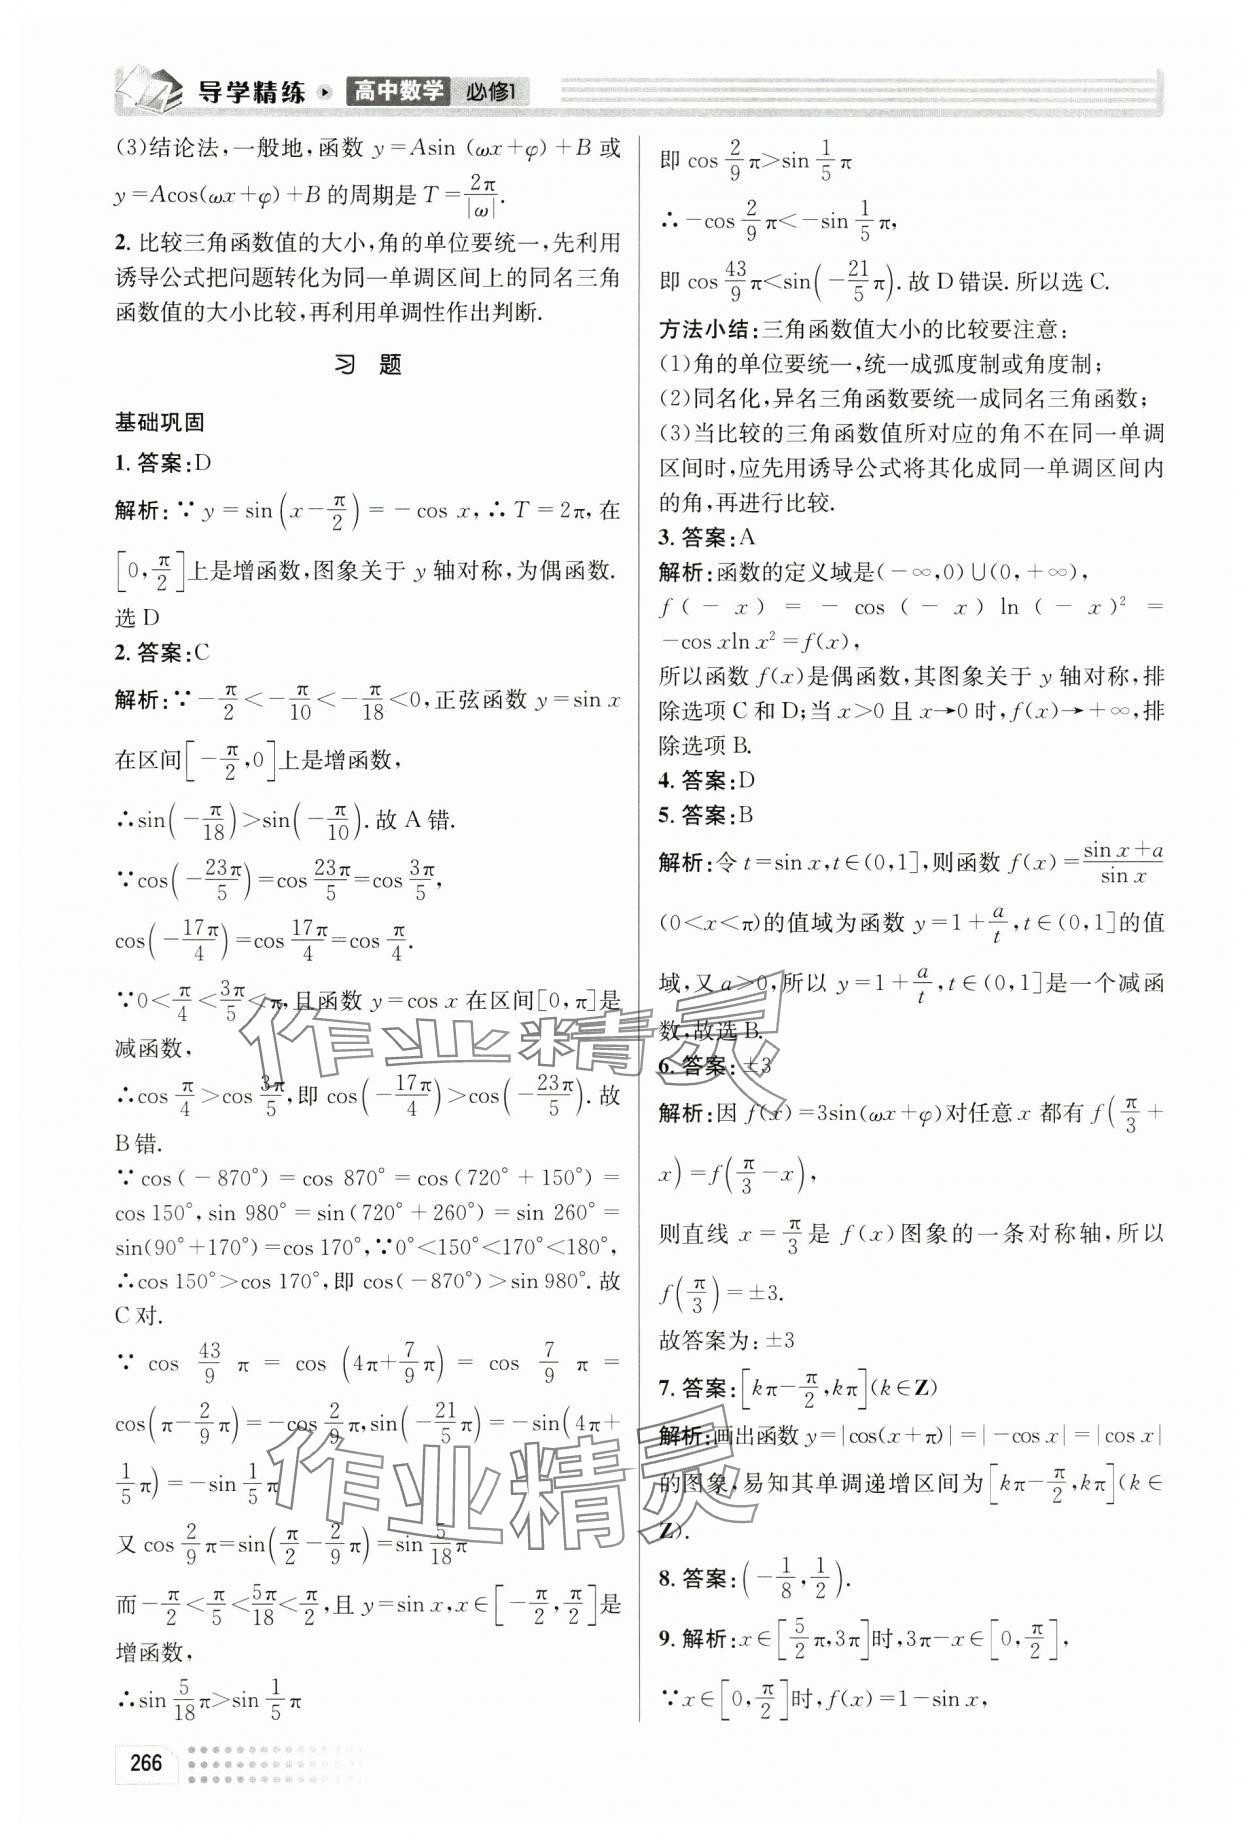 导学精练 高中数学 必修1
(3)结论法,一般地,函数 y=Asin (ωx+φ)+B 或
y=Acos(ωx+φ)+B 的周期是 T=2π/|ω|.
2. 比较三角函数值的大小,角的单位要统一,先利用
诱导公式把问题转化为同一单调区间上的同名三角
函数值的大小比较,再利用单调性作出判断.
习 题
基础巩固
1. 答案:D
解析:∵ y=sin(x-π/2)=-cos x,∴T=2π,在
[0,π/2]上是增函数,图象关于 y 轴对称,为偶函数.
选 D
2. 答案:C
解析:∵-π/2<-π/10<-π/18<0,正弦函数 y=sin x
在区间[-π/2,0]上是增函数,
∴sin(-π/18)>sin(-π/10).故 A 错.
∵cos(-23π/5)=cos 23π/5=cos 3π/5,
cos(-17π/4)=cos 17π/4=cos π/4.
∵0<π/4<3π/5<π,且函数 y=cos x 在区间[0,π]是
减函数,
∴cos π/4>cos 3π/5,即 cos(-17π/4)>cos(-23π/5).故
B 错.
∵cos(-870°)=cos 870°=cos(720°+150°)=
cos 150°,sin 980°=sin(720°+260°)=sin 260°=
sin(90°+170°)=cos 170°,∵0°<150°<170°<180°,
∴cos 150°>cos 170°,即 cos(-870°)>sin 980°.故
C 对.
∵ cos 43/9 π = cos (4π+7/9 π) = cos 7/9 π =
cos(π-2/9 π)=-cos 2/9 π,sin(-21/5 π)=-sin(4π+
1/5 π)=-sin 1/5 π
又 cos 2/9 π=sin(π/2-2/9 π)=sin 5/18 π
而-π/2<π/5<5π/18<π/2,且 y=sin x,x∈[-π/2,π/2]是
增函数,
∴sin 5/18 π>sin 1/5 π
即 cos 2/9 π>sin 1/5 π
∴-cos 2/9 π<-sin 1/5 π,
即 cos 43/9 π<sin(-21/5 π).故 D 错误.所以选 C.
方法小结:三角函数值大小的比较要注意:
(1)角的单位要统一,统一成弧度制或角度制;
(2)同名化,异名三角函数要统一成同名三角函数;
(3)当比较的三角函数值所对应的角不在同一单调
区间时,应先用诱导公式将其化成同一单调区间内
的角,再进行比较.
3. 答案:A
解析:函数的定义域是(-∞,0)∪(0,+∞),
f(-x) = -cos(-x)ln(-x)² =
-cos xln x²=f(x),
所以函数 f(x)是偶函数,其图象关于 y 轴对称,排
除选项 C 和 D;当 x>0 且 x→0 时,f(x)→+∞,排
除选项 B.
4. 答案:D
5. 答案:B
解析:令 t=sin x,t∈(0,1],则函数 f(x)=(sin x+a)/sin x
(0<x<π)的值域为函数 y=1+a/t,t∈(0,1]的值
域,又 a>0,所以 y=1+a/t,t∈(0,1]是一个减函
数,故选 B.
6. 答案:±3
解析:因 f(x)=3sin(ωx+φ)对任意 x 都有 f(π/3+
x)=f(π/3-x),
则直线 x=π/3是 f(x)图象的一条对称轴,所以
f(π/3)=±3.
故答案为:±3
7. 答案:[kπ-π/2,kπ](k∈Z)
解析:画出函数 y=|cos(x+π)|=|-cos x|=|cos x|
的图象,易知其单调递增区间为[kπ-π/2,kπ](k∈
Z).
8. 答案:(-1/8,1/2).
9. 解析:x∈[5/2 π,3π]时,3π-x∈[0,π/2],
∵x∈[0,π/2]时,f(x)=1-sin x,
266
作业精灵
作业精灵